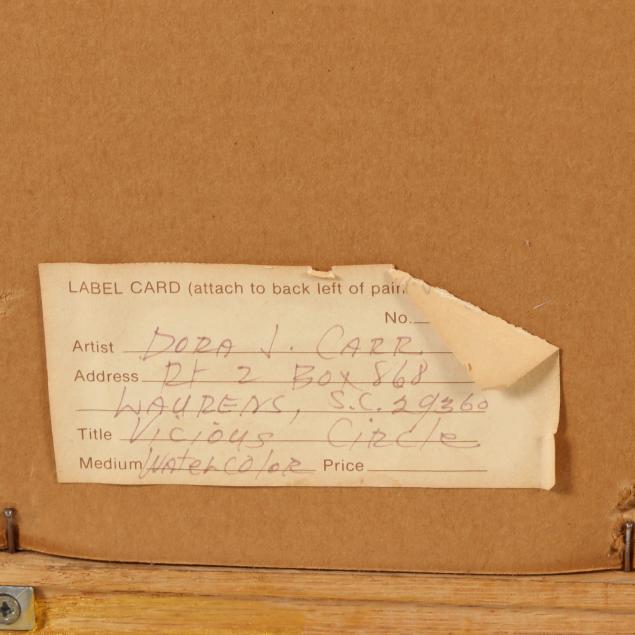 LABEL CARD (attach to back left of pain
No.
Artist DORA J. CARR
Address Rt 2 BOX 868
LAURENS, S.C. 29360
Title Vicious Circle
Medium Watercolor Price